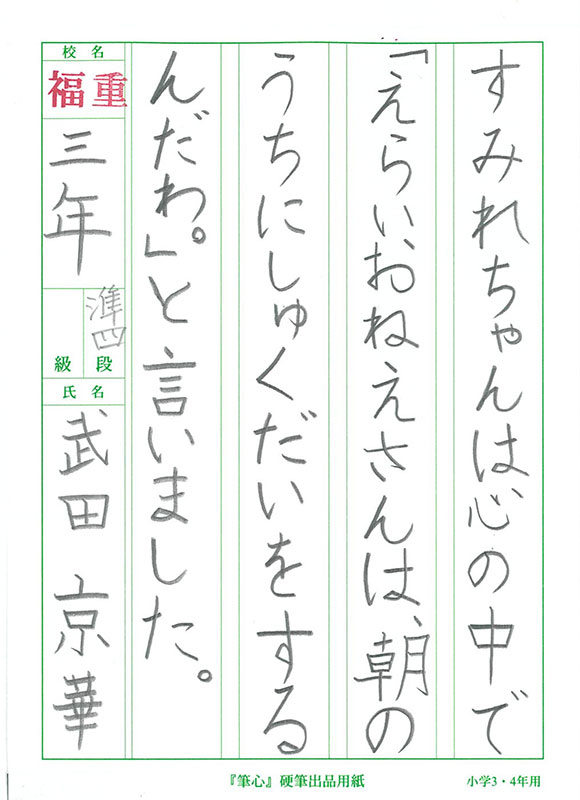 すみれちゃんは心の中で
「えらい、おねえさんは、朝の
うちにしゅくだいをする
んだわ。」と言いました。
校名
福重
三年
準四
級段
氏名
武田 京華
『筆心』硬筆出品用紙
小学3・4年用